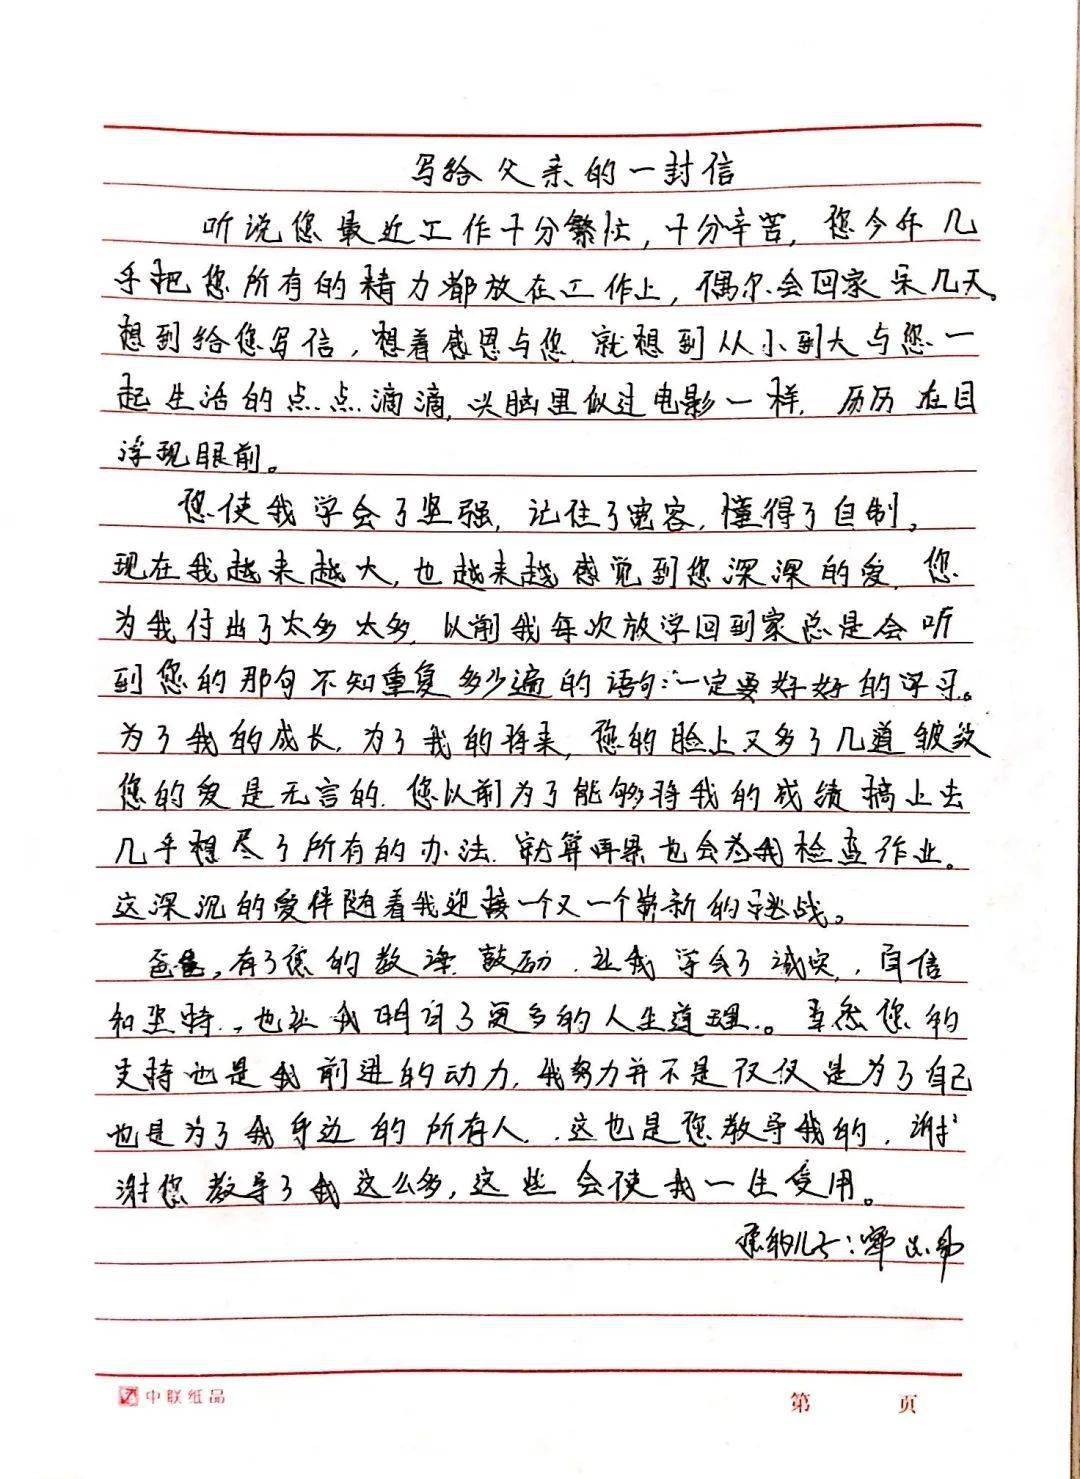 写给父亲的一封信
听说您最近工作十分繁忙，十分辛苦，您今年几
乎把您所有的精力都放在工作上，偶尔会回家呆几天。
想到给您写信，想着感恩与您，就想到从小到大与您一
起生活的点点滴滴，头脑里似过电影一样，历历在目
浮现眼前。
您使我学会了坚强，记住了宽容，懂得了自制。
现在我越来越大，也越来越感觉到您深深的爱，您
为我付出了太多太多，以前我每次放学回到家总是会听
到您的那句不知重复多少遍的语句：一定要好好的学习。
为了我的成长，为了我的将来，您的脸上又多了几道皱纹
您的爱是无言的，您以前为了能够将我的成绩搞上去
几乎想尽了所有的办法，就算再累也会为我检查作业。
这深沉的爱伴随着我迎接一个又一个崭新的挑战。
爸爸，有了您的教诲，鼓励，让我学会了诚实，自信
和坚持，也让我明白了更多的人生道理。当然您的
支持也是我前进的动力，我努力并不是仅仅是为了自己
也是为了我身边的所有人，这也是您教导我的，谢
谢您教导了我这么多，这些会使我一生受用。
您的儿子：
中联纸品
第 页